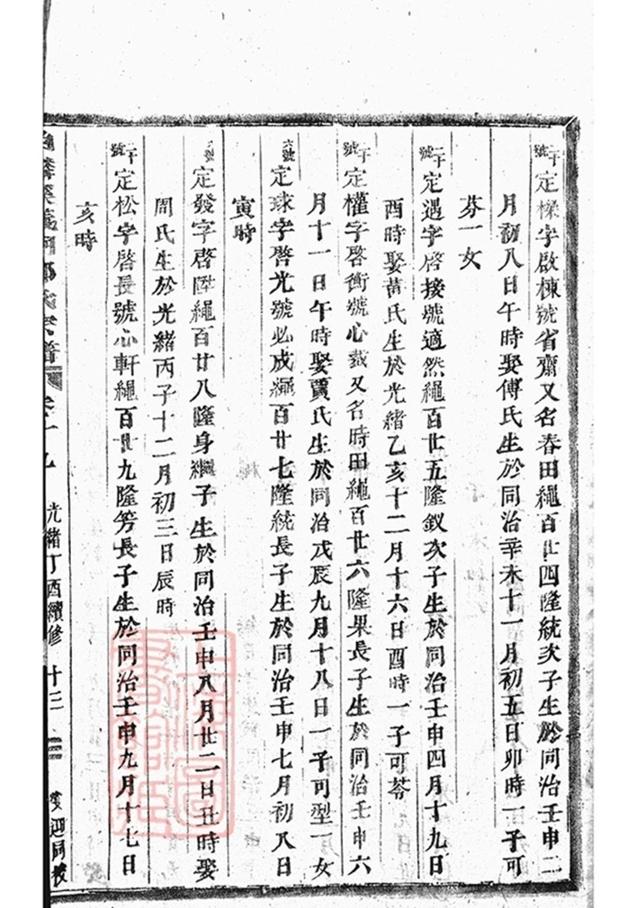 二千號定樑字啟棟號省齋又名春田繩百廿四隆統次子生於同治壬申二
月初八日午時娶傅氏生於同治辛未十一月初五日卯時一子可
芬一女
二千號定遇字啓接號適然繩百廿五隆釵次子生於同治壬申四月十九日
酉時娶黃氏生於光緒乙亥十二月十六日酉時一子可苓
二千號定權字啓衡號心裁又名時田繩百廿六隆果長子生於同治壬申六
月十一日午時娶賈氏生於同治戊辰九月十八日一子可型一女
六號定球字啓光號必成繩百廿七隆統長子生於同治壬申七月初八日
寅時
號定發字啓陞繩百廿八隆身繼子生於同治壬申八月廿二日丑時娶
周氏生於光緒丙子十二月初三日辰時
二千號定松字啓長號心軒繩百廿九隆筹長子生於同治壬申九月十七日
亥時
氏宗譜 卷十九 光緒丁酉續修 十三 迎同校